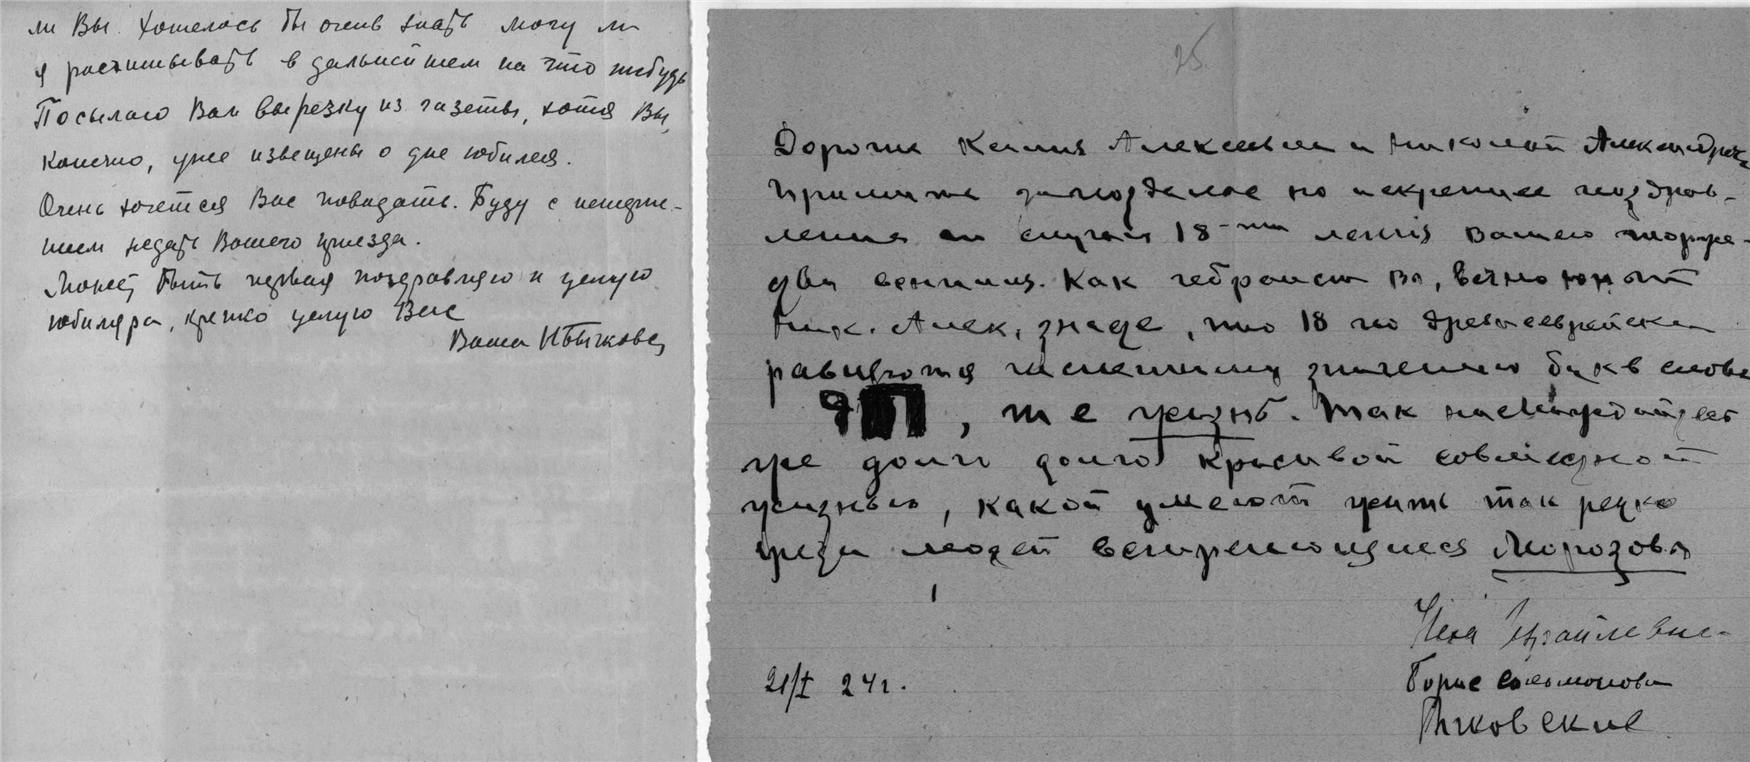 ли Вы. Хотелось бы очень знать могу ли
я расчитывать в дальнейшем на что нибудь
Посылаю Вам вырезку из газеты, хотя Вы,
конечно, уже извещены о дне юбилея.
Очень хочется Вас повидать. Буду с нетерпе-
нием ждать Вашего приезда.
Может быть первая поздравляю и целую
юбиляра, крепко целую Вас
Ваша
25.
Дорогие Ксения Алексеевна и Николай Александрович
Примите запоздалое но искреннее поздрав-
ление по случаю 18-ти летия Вашего
Как гебраист Вы, вечно юный
Ник. Алек, знаете, что 18 по древнееврейски
равняются численному значению букв слова
, т е жизнь. Так наслаждайтесь
же долго долго красивой совместной
жизнью, какой умеют жить так редко
среди людей встречающиеся Морозовы
21/I 24 г.
Борис Соломонович